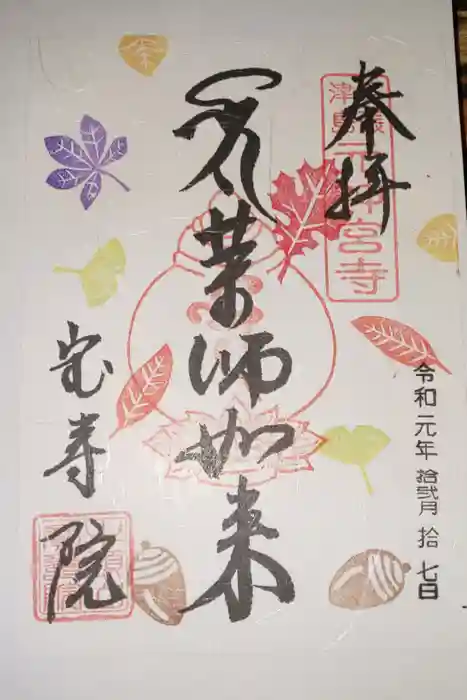 奉拝
津島
元神宮寺
令和元年 拾弐月 拾七日
薬師如来
宝寿院